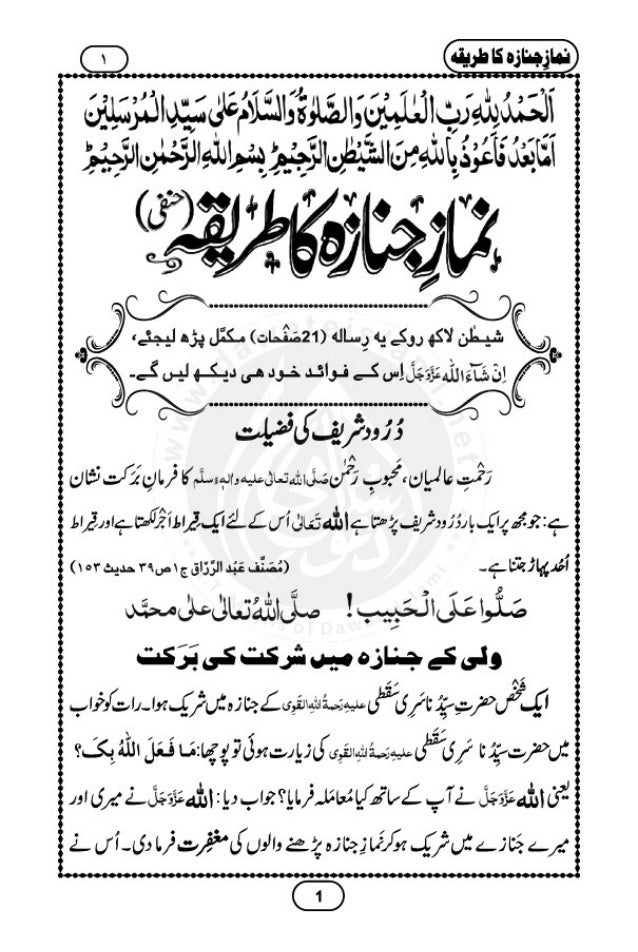 نمازِ جنازہ کا طریقہ
۱
اَلْحَمْدُ لِلّٰهِ رَبِّ الْعٰلَمِیْنَ وَ الصَّلٰوةُ وَ السَّلَامُ عَلٰی سَیِّدِ الْمُرْسَلِیْنَ
اَمَّا بَعْدُ فَاَعُوْذُ بِاللّٰهِ مِنَ الشَّیْطٰنِ الرَّجِیْمِ ؕ بِسْمِ اللّٰهِ الرَّحْمٰنِ الرَّحِیْمِ ؕ
نمازِ جنازہ کا طریقہ (حنفی)
شیطٰن لاکھ روکے یہ رِسالہ (21صَفْحات) مکمَّل پڑھ لیجئے،
اِنْ شَآءَ اللہ عَزَّوَجَلَّ اِس کے فوائد خود ھی دیکھ لیں گے۔
دُرُود شریف کی فضیلت
رَحْمتِ عالمیان، محبوبِ رَحْمٰن صَلَّی اللہ تعالٰی علیہ واٰلہٖ وسلَّم کا فرمانِ بَرَکت نشان
ہے: جو مجھ پر ایک بار دُرُود شریف پڑھتا ہے اللہ تَعَالٰی اُس کے لئے ایک قیراط اَجْر لکھتا ہے اور قیراط
اُحُد پہاڑ جتنا ہے۔ (مُصَنَّف عَبْد الرَّزَّاق ج۱ ص۳۹ حدیث ۱۵۳)
صَلُّوا عَلَی الْحَبِیْب! صلَّی اللہُ تعالٰی علٰی محمَّد
ولی کے جنازہ میں شرکت کی بَرَکت
ایک شَخْص حضرتِ سیِّدُنا سَری سَقَطی علیہ رَحمۃُ اللہِ القَوِی کے جنازہ میں شریک ہوا۔ رات کو خواب
میں حضرت سیِّدُنا سَرِی سَقَطی علیہ رَحمۃُ اللہِ القَوِی کی زیارت ہوئی تو پوچھا: مَا فَعَلَ اللّٰہُ بِکَ؟
یعنی اللہ عَزَّوَجَلَّ نے آپ کے ساتھ کیا مُعامَلہ فرمایا؟ جواب دیا: اللہ عَزَّوَجَلَّ نے میری اور
میرے جَنازے میں شریک ہو کر نَمازِ جنازہ پڑھنے والوں کی مغفِرت فرما دی۔ اُس نے
1